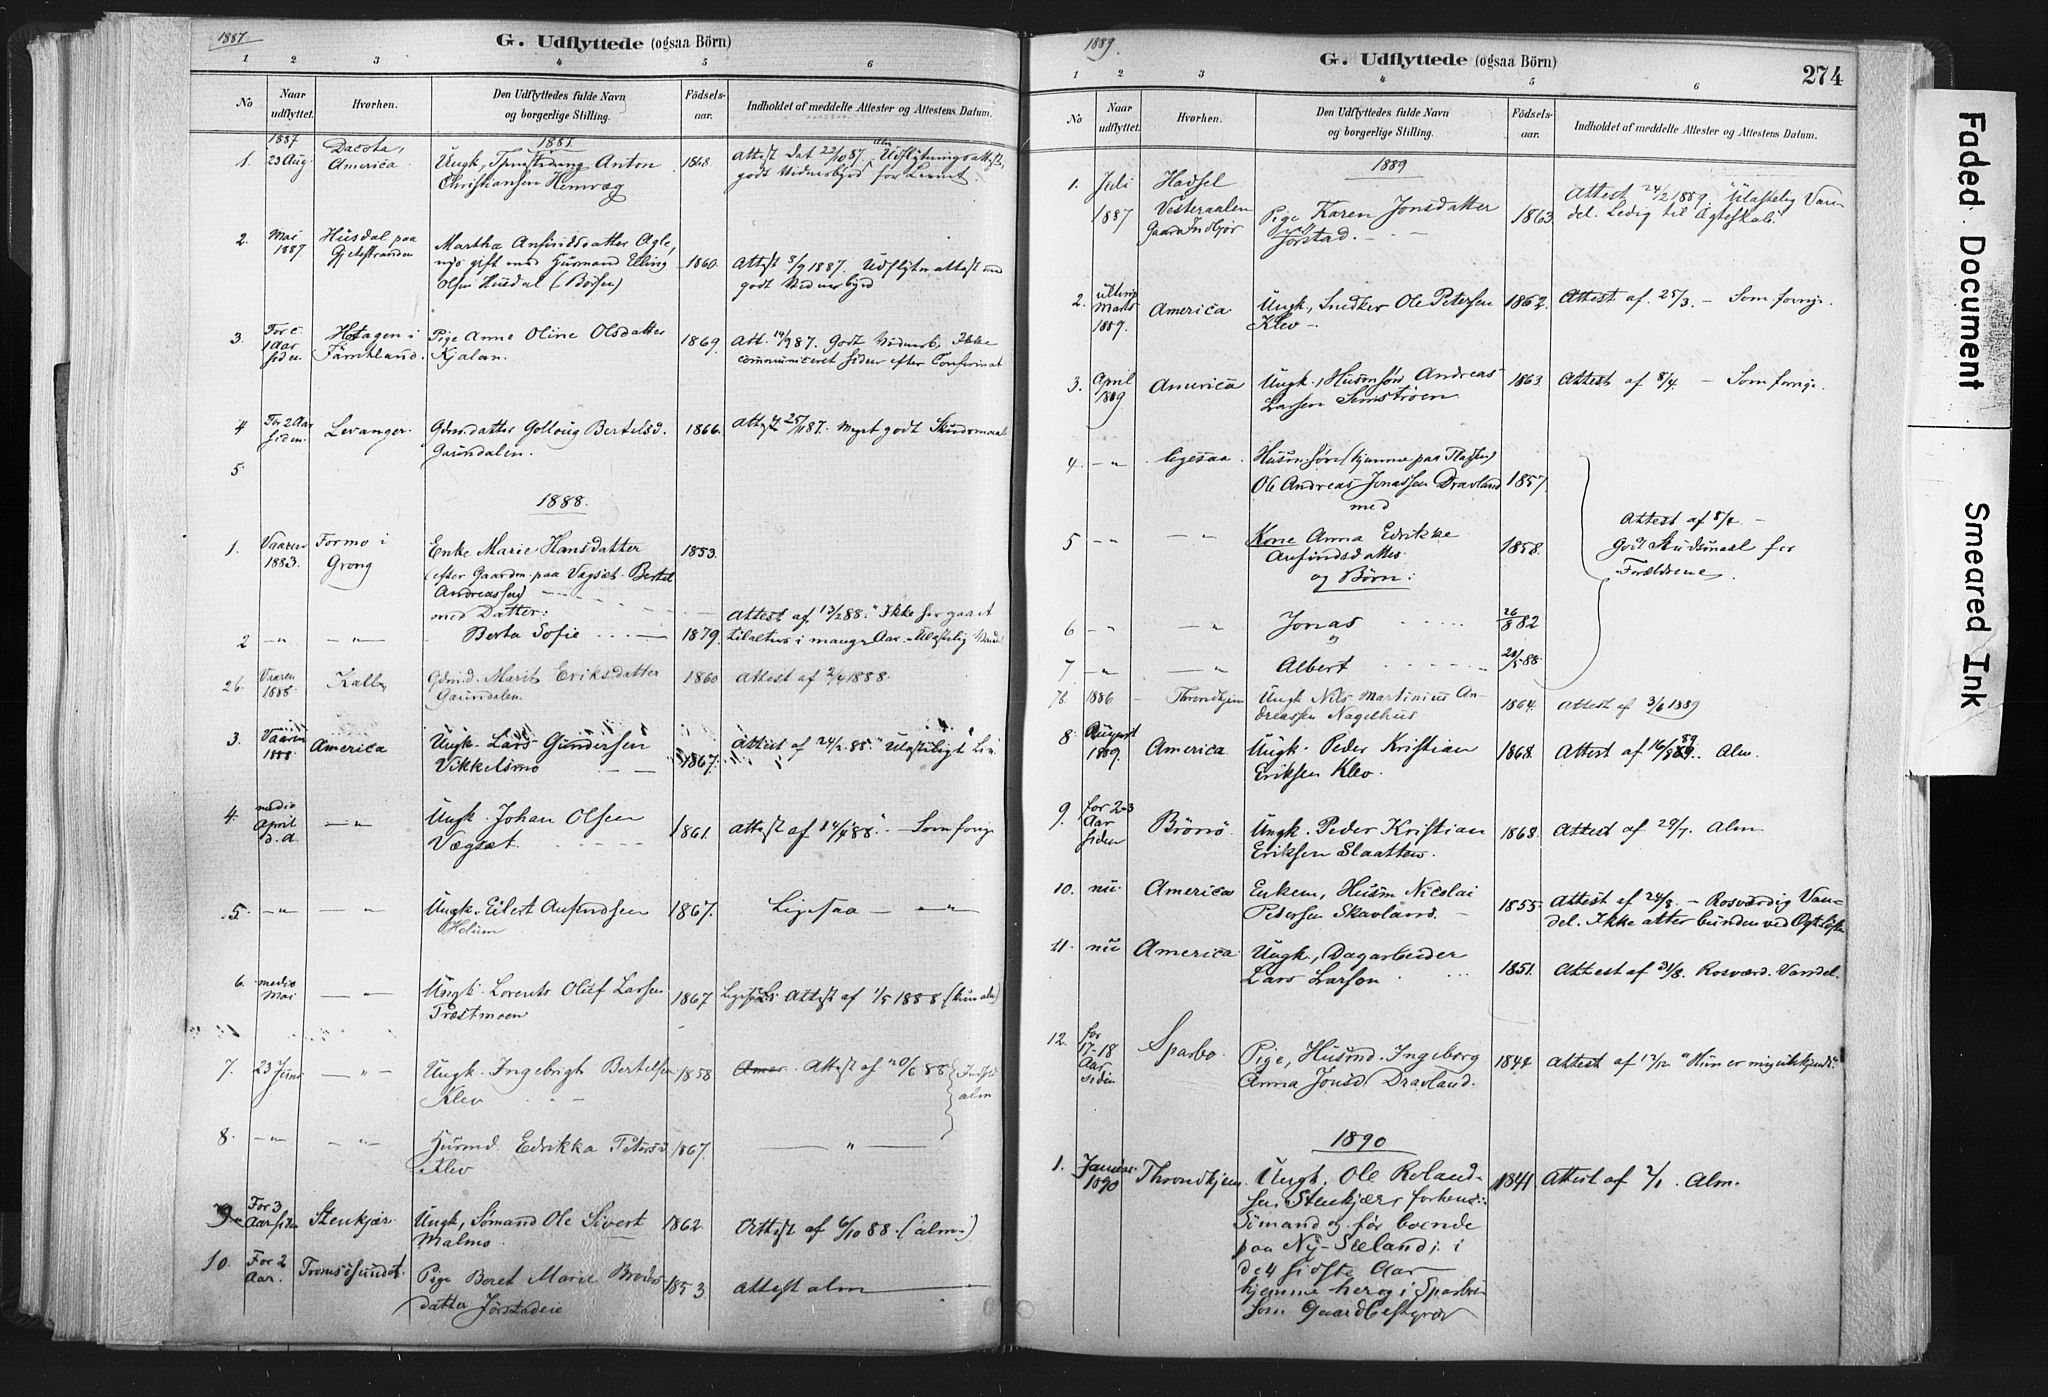 1887
G. Udflyttede (ogsaa Börn)
1 2 3 4 5 6
No
Naar udflyttet.
Hvorhen.
Den Udflyttedes fulde Navn og borgerlige Stilling.
Födsels-aar.
Indholdet af meddelte Attester og Attestens Datum.
1887
1. 1887 23 Aug. Dacota, America Ungk. Anton 1868. Attest dat 22/10 87. Udflytningsattest,
Christiansen godt Vidnesbyrd
2. Mai 1887 Husdal paa Martha Anfindsdatter Agle,
gift med Husmand Elling 1860. Attest 8/9 1887. Udflytn.attest
Olsen Husdal godt Vidnesbyrd
3. For c. 1 Aar siden Hotagen i Jämtland. Pige Anne Oline Olsdatter 1869. Att. 14/9 87. Godt Vidnesb. Ikke
Kjalan. communiceret siden efter Confirmat
4 For 2 Aar siden. Levanger. Gdm.datter Gollaug Bertelsd. 1866. Attest 25/11 87. Meget godt Skudsmaal
Gaundalen.
5
1888.
1. Vaaren 1883. Formo i Grong Enke Marie Hansdatter 1853.
(efter Gaardm. paa Vægset Bertel
Andreassen)
med Datter: Attest af 13/2 88. "Ikke her gaaet
2 -"- -"- Berta Sofie 1879. tilalters i mange Aar. Ulastelig Vandel
2b. Vaaren 1888. Gdm.d. Marit Eriksdatter 1860 Attest af 2/4 1888.
Gaundalen.
3. Vaaren 1888 America Ungk. Lars Gundersen 1867. Attest af 24/2 88. "Ulasteligt
Vikkelsmo
4. medio April d.A. -"- Ungk. Johan Olsen 1861. Attest af 14/4 88. - Som forrige
Vægset.
5. -"- -"- Ungk. Eilert Anfindsen 1867. Ligesaa -"-
6. medio Mai -"- Ungk. Lorents Oluf Larsen 1867 Attest af 1/5 1888
Træstmoen
7. 23 Juni -"- Ungk. Ingebrigt Bertelsen 1858. Attest af 20/6 88
Klev alm
8. -"- -"- Husmd. Edrikka Petersd. 1867. -"-
Klev
9. For 3 Aar siden Stenkjær. Ungk. Sömand Ole Sivert 1862. Attest af 6/10 88. (alm.)
Malmo.
10. For 2 Aar. Tromsösundet. Pige Beret Marie 1853. Attest alm
datter Jörstadeie
1889.
G. Udflyttede (ogsaa Börn)
274
1 2 3 4 5 6
No
Naar udflyttet.
Hvorhen.
Den Udflyttedes fulde Navn og borgerlige Stilling.
Födsels-aar.
Indholdet af meddelte Attester og Attestens Datum.
1889
1. Juli 1887 Hadsel Vesteraalen Pige Karen Jonsdatter 1863 Attest 24/2 1889. "Ulastelig Van-
Gaard Indbjör Jörstad. del. Ledig til Ægteskab."
2. Marts 1889. America Ungk. Snedker Ole Petersen 1862. Attest af 25/3. - Som forrige.
Klev -
3. April 1889 America Ungk., Husm.sön Andreas 1863. Attest af 8/4. - Som forrige.
Larsen
4. -"- ligesaa. Husm.sön (hjemme paa
Ole Andreas Jonassen Dravland 1857.
med
5 -"- -"- Kone Anna Edrikke 1858. Attest af 8/4. -
Anfindsdatter Godt Skudsmaal for
og Börn: Forældrene.
6 -"- -"- Jonas 26/8 82
og
7 -"- -"- Albert 20/5 88.
7b. 1886 Throndhjem Ungk Nils Martinius An- 1864. Attest af 3/6 1889
dreassen Nagelhus
8 August 1889. America Ungk. Peder Kristian 1868. Attest af 16/8 89. Alm.
Eriksen Klev.
9. for 2-3 Aar siden Brönö. Ungk. Peder Kristian 1868. Attest af 29/7. Alm.
Eriksen Slaatten.
10. nu America Enkem., Husm Nicolai 1855. Attest af 24/8. - Rosværdig Van-
Petersen Skavland. del. Ikke atter bunden ved Ægt.löfte
11. nu America Ungk., Dagarbeider 1851. Attest af 31/8. Rosværd. Vandel.
Lars Larsen
12. for 17-18 Aar siden Sparbo. Pige, Husmd. Ingeborg 1844 Attest af 12/12 "Hun er mig ubekjendt."
Anna Jonsd. Dravland.
1890
1. Januar 1890 Throndhjem Ungk. Ole Roland- 1841 Attest af 2/1. Alm.
sen Stenkjær, forhen
Sömand og för boende
paa Ny-Seeland; i
de 4 sidste Aar
hjemme her og i Sparbu
som Gaardbestyrer
Faded Document
Smeared Ink